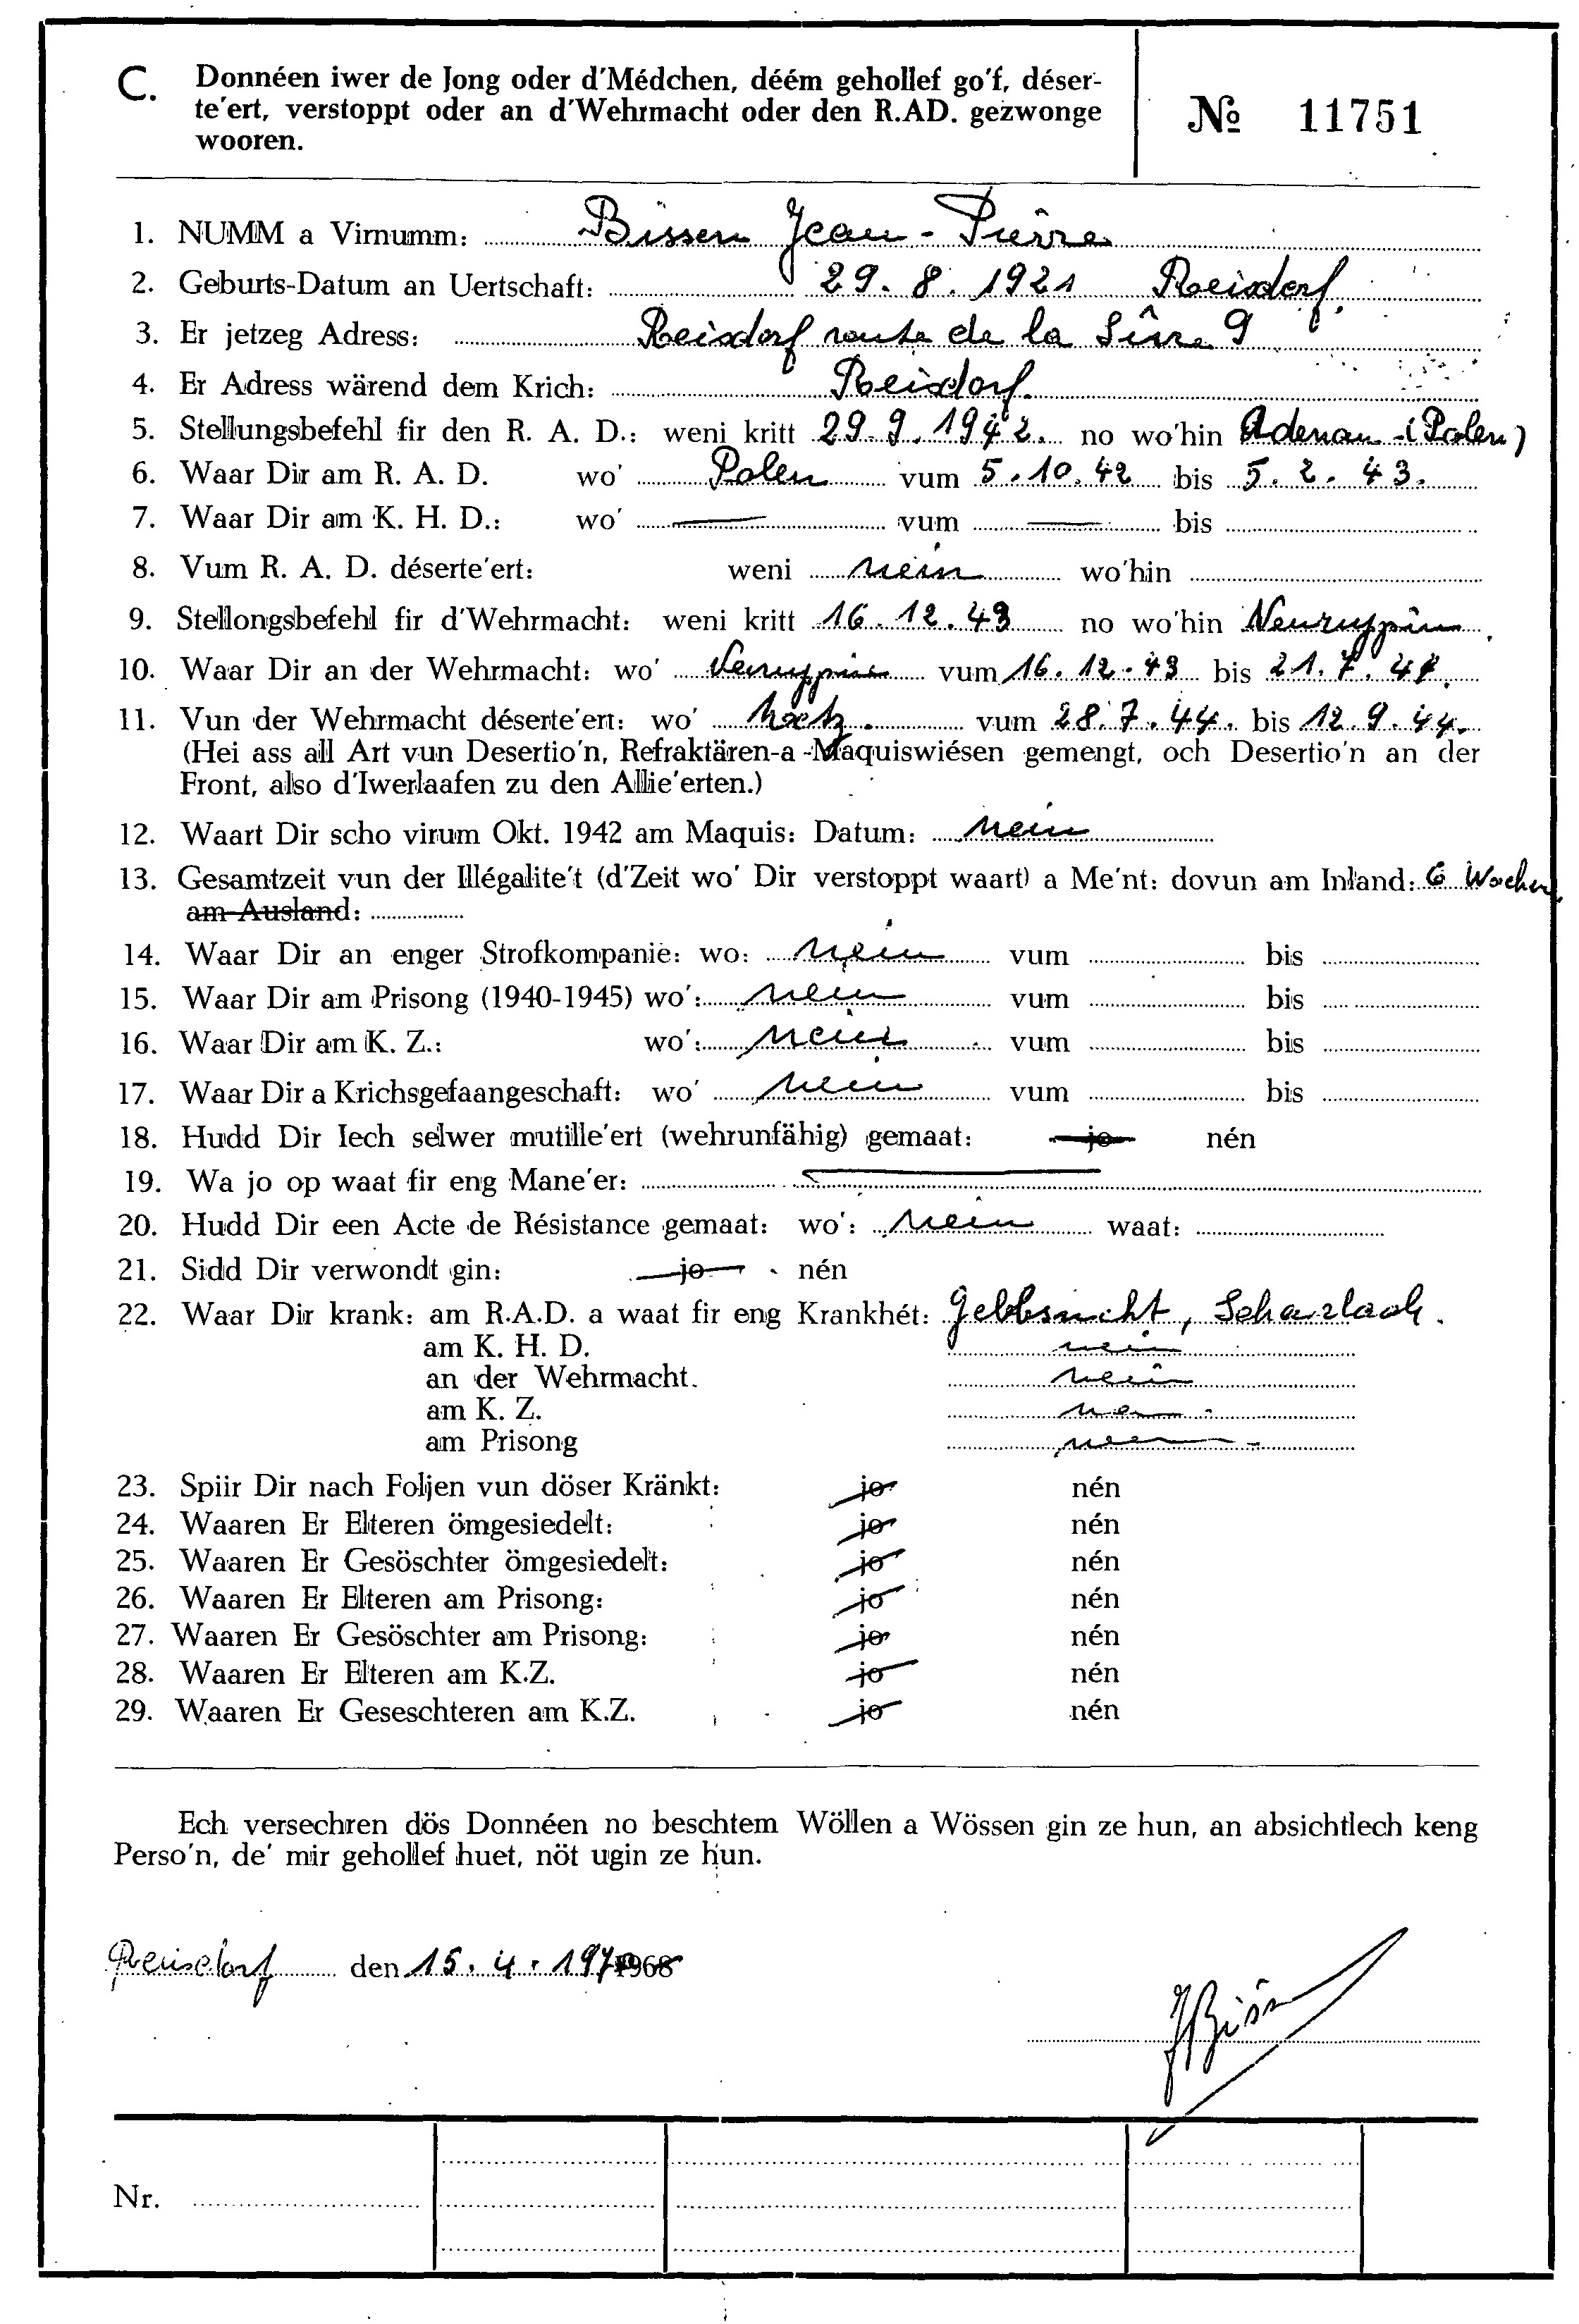 C. Donnéen iwer de Jong oder d'Médchen, déém gehollef go'f, déser-
te'ert, verstoppt oder an d'Wehrmacht oder den R.AD. gezwonge
wooren.
№ 11751
1. NUMM a Virnumm: Bissen Jean-Pierre
2. Geburts-Datum an Uertschaft: 29.8.1921 Reisdorf.
3. Er jetzeg Adress: Reisdorf route de la Sûre 9
4. Er Adress wärend dem Krich: Reisdorf.
5. Stellungsbefehl fir den R. A. D.: weni kritt 29.9.1942. no wo'hin Adenau-(Polen)
6. Waar Dir am R. A. D. wo' Polen vum 5.10.42 bis 5.2.43.
7. Waar Dir am K. H. D.: wo' — vum — bis
8. Vum R. A. D. déserte'ert: weni nein wo'hin
9. Stellongsbefehl fir d'Wehrmacht: weni kritt 16.12.43 no wo'hin Neuruppin
10. Waar Dir an der Wehrmacht: wo' Neuruppin vum 16.12.43 bis 21.7.44.
11. Vun der Wehrmacht déserte'ert: wo' vum 28.7.44. bis 12.9.44.
(Hei ass all Art vun Desertio'n, Refraktären-a-Maquiswiésen gemengt, och Desertio'n an der
Front, also d'Iwerlaafen zu den Allie'erten.)
12. Waart Dir scho virum Okt. 1942 am Maquis: Datum: nein
13. Gesamtzeit vun der Illégalite't (d'Zeit wo' Dir verstoppt waart) a Me'nt: dovun am Inland: 6 Wochen
am Ausland:
14. Waar Dir an enger Strofkompanie: wo: nein vum bis
15. Waar Dir am Prisong (1940-1945) wo': nein vum bis
16. Waar Dir am K. Z.: wo': nein vum bis
17. Waar Dir a Krichsgefaangeschaft: wo' nein vum bis
18. Hudd Dir Iech selwer mutille'ert (wehrunfähig) gemaat: jo nén
19. Wa jo op waat fir eng Mane'er: —
20. Hudd Dir een Acte de Résistance gemaat: wo': nein waat:
21. Sidd Dir verwondt gin: jo nén
22. Waar Dir krank: am R.A.D. a waat fir eng Krankhét: Gelbsucht, Scharlach.
am K. H. D. nein
an der Wehrmacht. nein
am K. Z. nein
am Prisong nein
23. Spiir Dir nach Foljen vun döser Kränkt: jo nén
24. Waaren Er Elteren ömgesiedelt: jo nén
25. Waaren Er Gesöschter ömgesiedelt: jo nén
26. Waaren Er Elteren am Prisong: jo nén
27. Waaren Er Gesöschter am Prisong: jo nén
28. Waaren Er Elteren am K.Z. jo nén
29. Waaren Er Geseschteren am K.Z. jo nén
Ech versechren dös Donnéen no beschtem Wöllen a Wössen gin ze hun, an absichtlech keng
Perso'n, de' mir gehollef huet, nöt ugin ze hun.
Reisdorf den 15.4.1970 1968
JBissen
Nr.